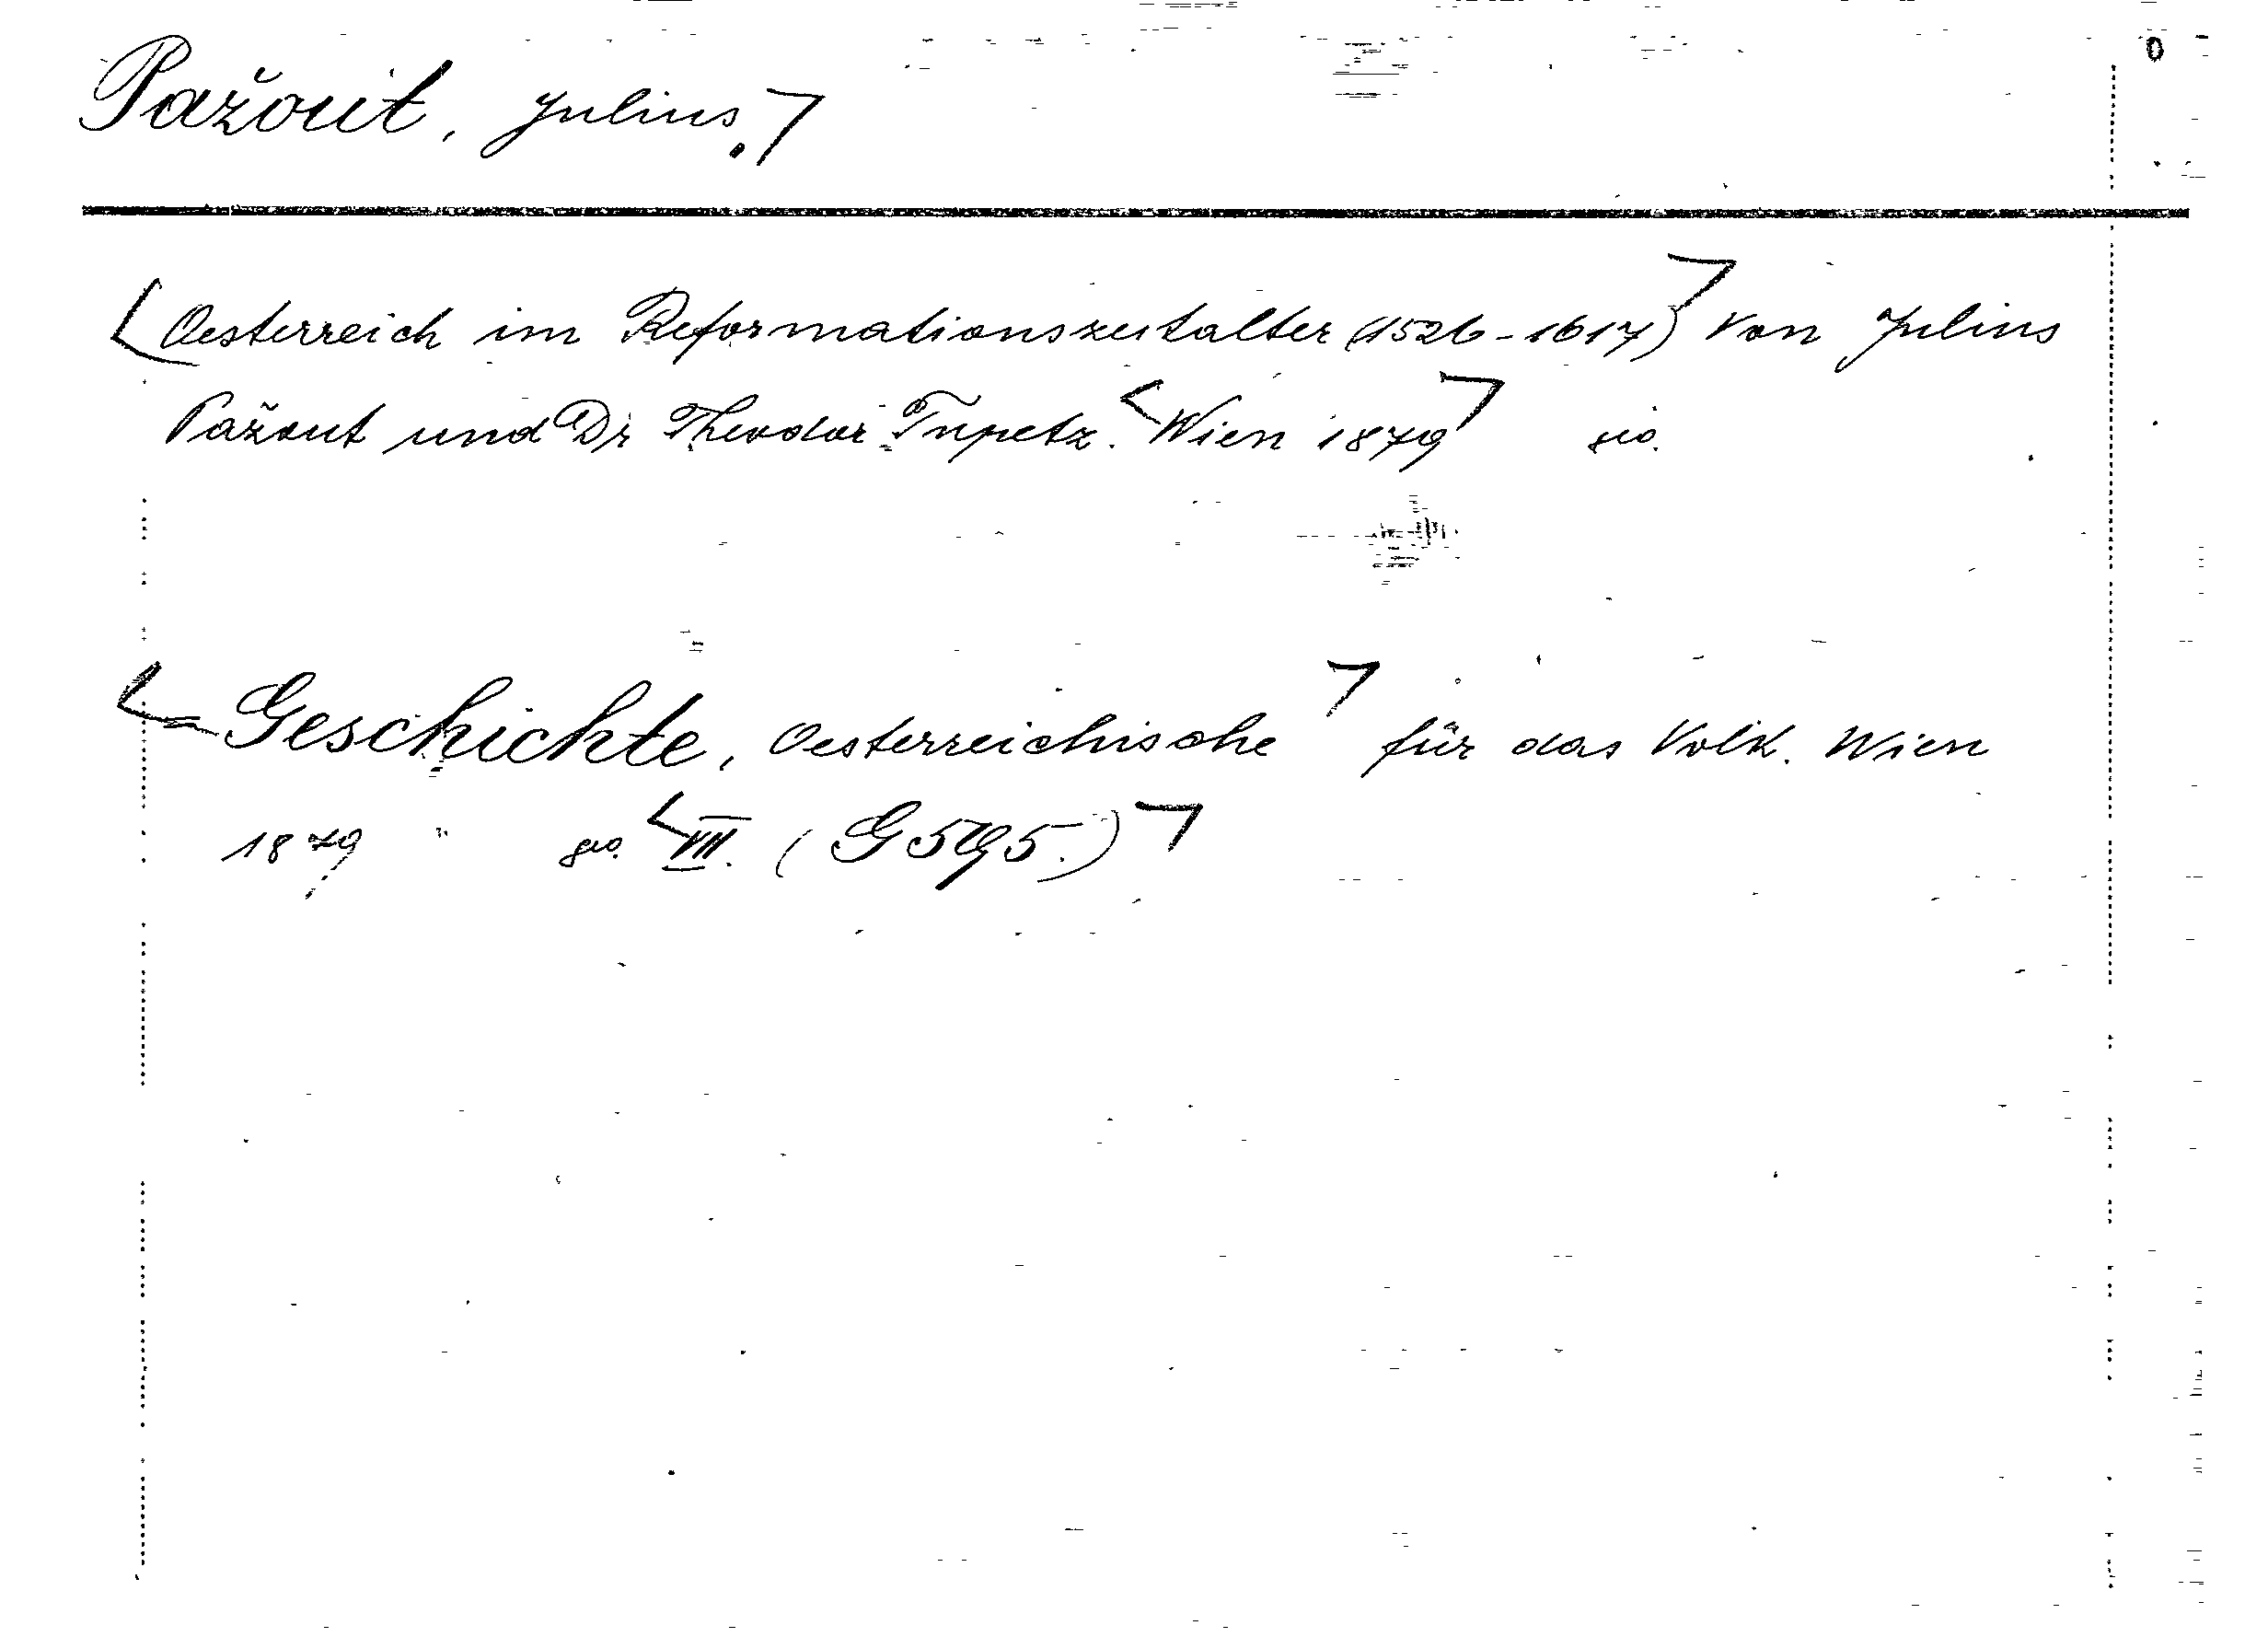 Pažout, Julius.
Oesterreich im Reformationszeitalter (1526-1617) Von Julius
Pažout und Dr Theodor Tupetz. Wien 1879 8º.
Geschichte, Oesterreichische für das Volk. Wien
1879 8º. VII. (G 595.)